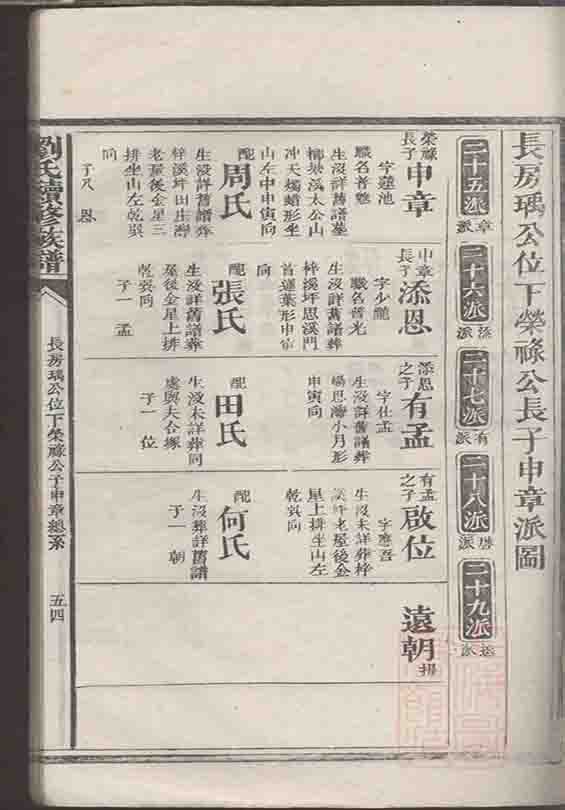 長房瑀公位下榮祿公長子申章派圖
二十五派
章派
二十六派
添派
二十七派
有派
二十八派
啟派
二十九派
遠派
榮祿長子
申章
字蓮池
職名普魁
生沒詳舊譜墓
椰槳溪太公山
冲天燭蠟形坐
山左中申寅向
配
周氏
生沒詳舊譜葬
梓溪坪田庄灣
老屋後金星三
排坐山左乾巽
向
子 添恩
申章長子
添恩
字少龍
職名普光
生沒詳舊譜葬
梓溪坪思溪門
首蓮葉形申寅
向
配
張氏
生沒詳舊譜葬
屋後金星上排
乾巽向
子一 孟
添恩之子
有孟
字仕孟
生沒詳舊譜葬
楊思灣小月形
申寅向
配
田氏
生沒未詳葬同
處與夫合塚
子一 位
有孟之子
啟位
字應吾
生沒未詳葬梓
溪坪老屋後金
星上排坐山左
乾巽向
配
何氏
生沒葬詳舊譜
子一 朝
遠朝
劉氏續修族譜
長房瑀公位下榮祿公子申章總系
五四